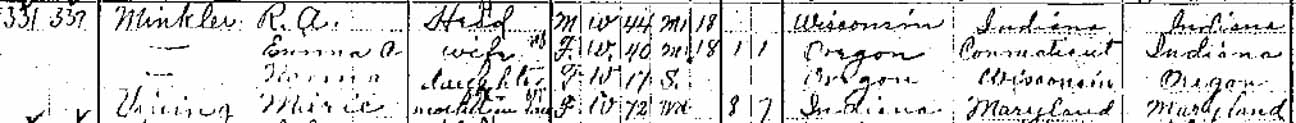 331 337 Minkler R. A. Head M W 44 M1 18 Wisconsin Indiana Indiana
— Emma A wife F. W. 40 M1 18 1 1 Oregon Connecticut Indiana
— Norma daughter F W 17 S. Oregon Wisconsin Oregon
x x Vining Marie mother in law F W 72 Wd 8 7 Indiana Maryland Maryland